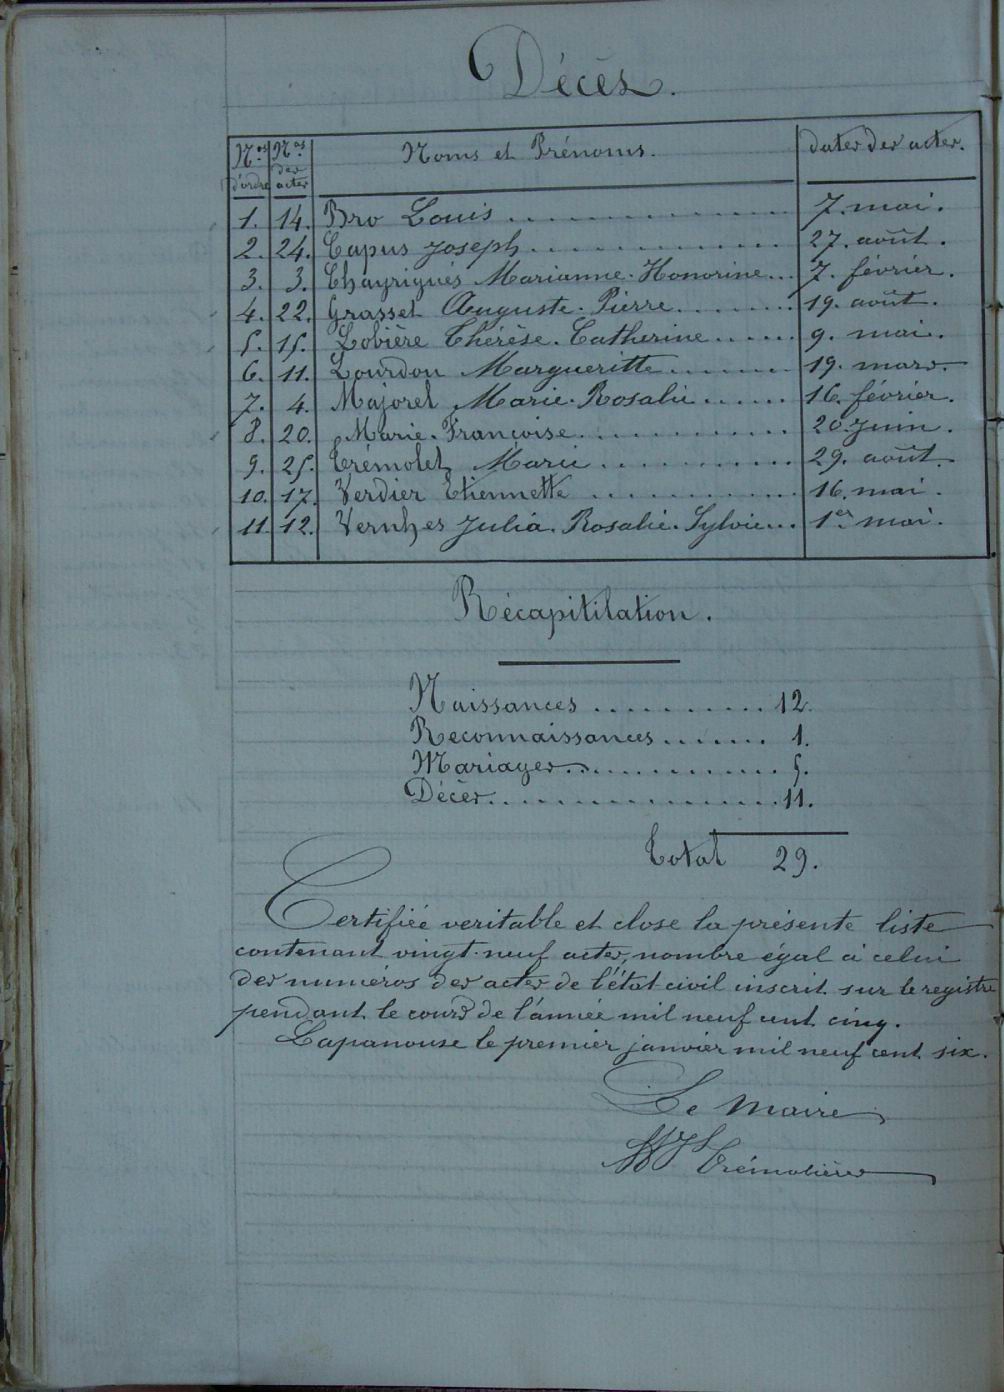 Décès.
Nos d'ordre Nos des actes Noms et Prénoms. dates des actes.
1. 14. Bro Louis 7. mai.
2. 24. Capus Joseph 27. août.
3. 3. Chayriguès Marianne. Honorine 7. février.
4. 22. Grasset Auguste. Pierre 19. août.
5. 15. Lobière Thérèse. Catherine 9. mai.
6. 11. Lourdou Margueritte 19. mars.
7. 4. Majorel Marie. Rosalie 16. février.
8. 20. Marie. Françoise 20. juin.
9. 25. Trémolet Marie 29. août.
10. 17. Verdier Etiennette 16. mai.
11. 12. Vernhes Julia. Rosalie. Sylvie 1er mai.
Récapitilation.
Naissances 12.
Reconnaissances 1.
Mariages 5.
Décès 11.
Total 29.
Certifiée veritable et close la présente liste
contenant vingt-neuf actes, nombre égal à celui
des numéros des actes de l'état civil inscrit sur le registre
pendant le cours de l'année mil neuf cent cinq.
Lapanouse le premier janvier mil neuf cent six.
Le Maire
Trémolières